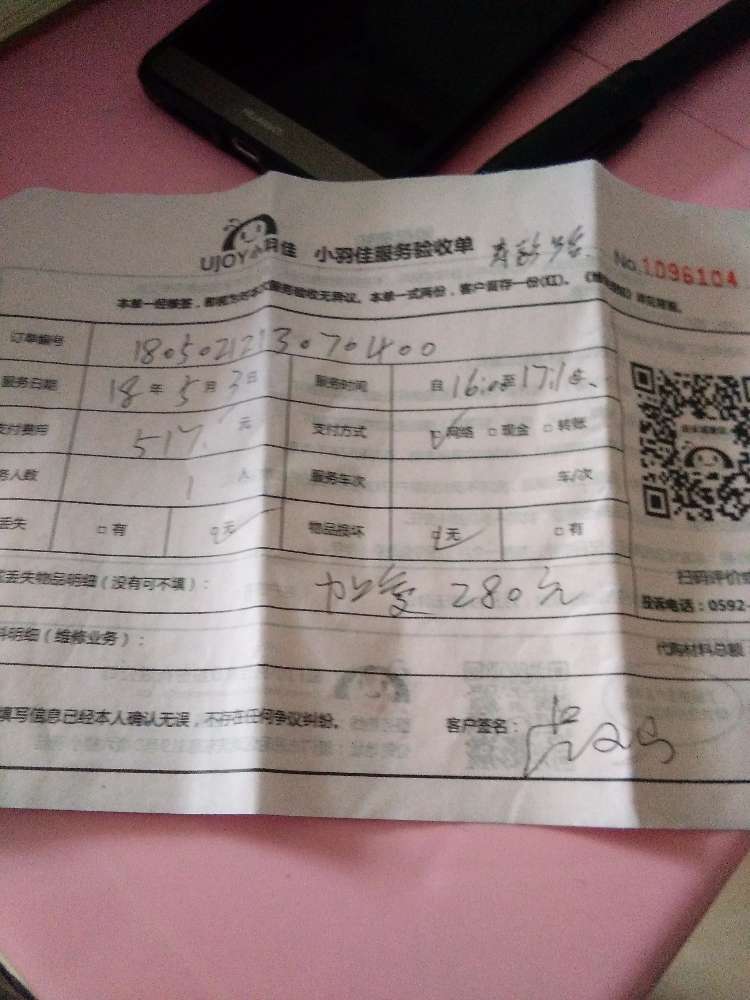 HUAWEI
UJOY小羽佳 小羽佳服务验收单 No.1096104
本单一经签, 服务验收无异议。本单一式两份，客户留存一份(红)。
订单编号 180502123070400
服务日期 18 年 5 月 3 日 服务时间 自 16:00 至 17:10
支付费用 517. 元 支付方式 网络 □ 现金 □ 转账
务人数 1 人 服务车次 车/次
丢失 □ 有 无 物品损坏 无 □ 有
丢失物品明细（没有可不填）： 加氟 280元
扫码评价
投诉电话：0592-
料明细（维修业务）： 代购材料总额
填写信息已经本人确认无误，不存在任何争议纠纷。 客户签名：